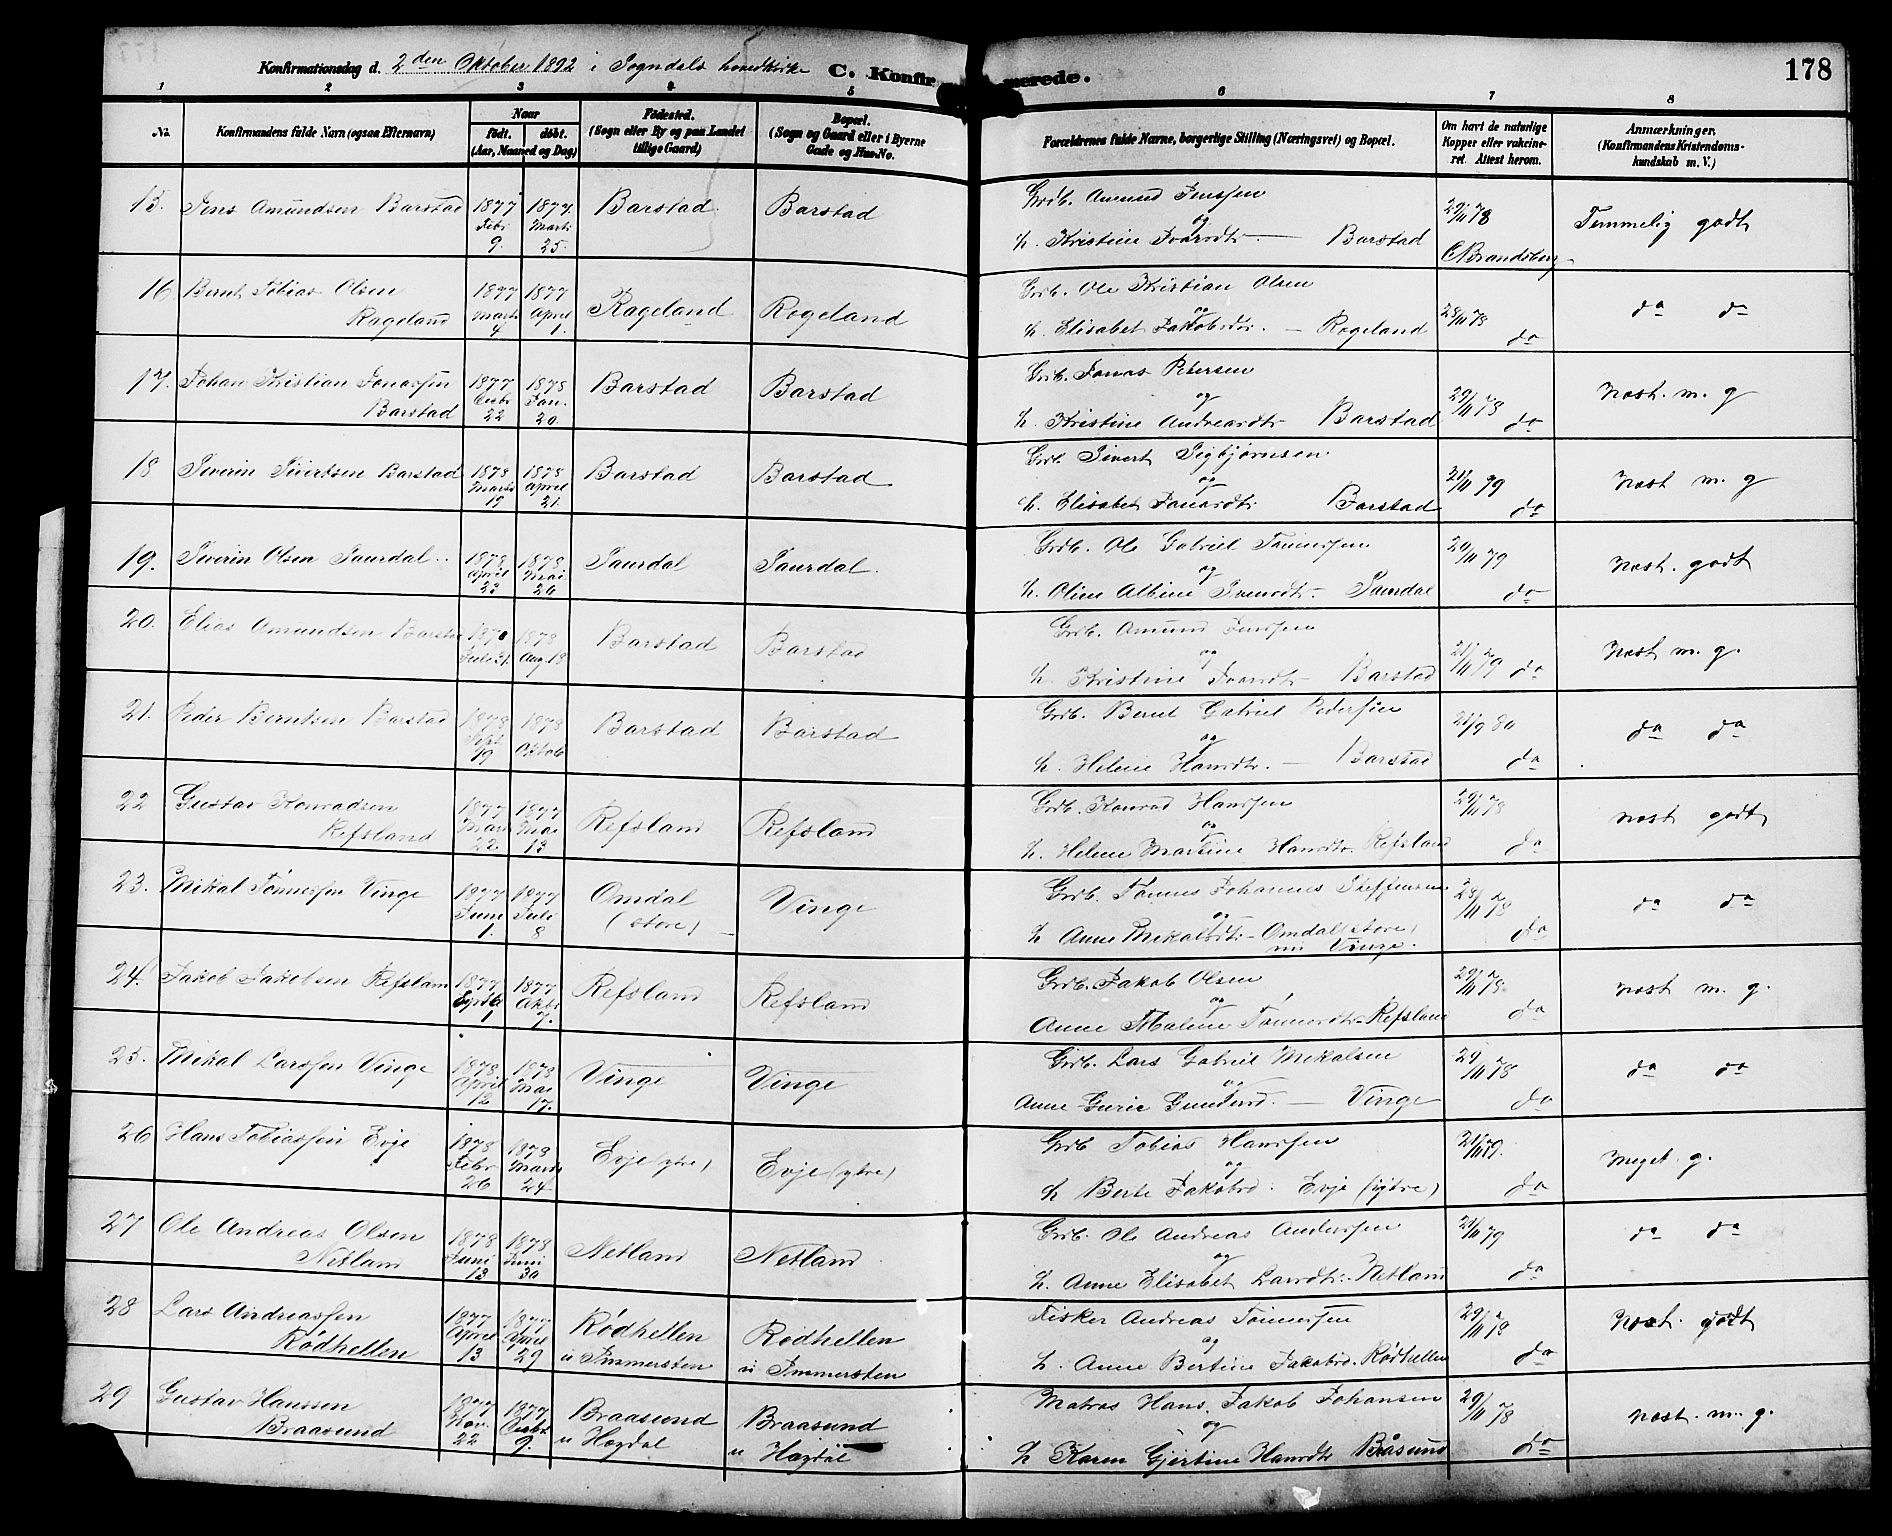 178
Konfirmationsdag d. 2den Oktober 1892 i Sogndals hovedkirke C. Konfirmerede.
1 2 3 4 5 6 7 8
No. Konfirmandens fulde Navn (ogsaa Efternavn)
Naar
født. døbt.
(Aar, Maaned og Dag)
Fødested.
(Sogn eller By og paa Landet
tillige Gaard)
Bopæl.
(Sogn og Gaard eller i Byerne
Gade og Hus-No.
Forældrenes fulde Navne, borgerlige Stilling (Næringsvei) og Bopæl.
Om havt de naturlige
Kopper eller vakcine-
ret. Attest herom.
Anmærkninger.
(Konfirmandens Kristendoms-
kundskab m. V.)
15. Jens Amundsen Barstad 1877 Febr 9. 1877. Marts 25. Barstad Barstad
Grdb. Amund Jenssen
og
h. Kristine Ivarsdtr. — Barstad
29/11 78
C Brandsberg
Temmelig godt
16 Bernt Tobias Olsen
Rageland
1877 Marts 4 1877 April 1. Rageland Rageland
Grdb. Ole Kristian Olsen
og
h. Elisabet Jakobsdtr. — Rageland
28/11 78
do
do do
17. Johan Kristian Jonassen
Barstad
1877 Decbr 22 1878 Jan. 20. Barstad Barstad
Grdb. Jonas Petersen
og
h. Kristine Andreasdtr Barstad
29/11 78
do
Næst. m. g
18 Severin Sivertsen Barstad 1878 Marts 19 1878 April 21. Barstad Barstad
Grdb. Sivert Sigbjørnsen.
og
h. Elisabet Jonasdtr Barstad
21/11 79
do
Næst m. g
19. Severin Olsen Saurdal 1878 April 23 1878 Mai 26 Saurdal Saurdal.
Grdb. Ole Gabriel Tønnessen
og
h. Oline Albine Ivarsdtr. — Saurdal
20/11 79
do
Næst. godt
20. Elias Amundsen Barstad 1878 Juli 31. 1878 Aug. 18 Barstad Barstad
Grdb. Amund Jenssen
og
h. Kristine Ivarsdtr Barstad
21/11 79 do
Næst m. g.
21. Peder Berntsen Barstad 1878 Sept 19 1878 Oktob Barstad Barstad
Grdb. Bernt Gabriel Pedersen
og
h. Helene Hansdtr. — Barstad
21/9 80
do
do do
22 Gustav Konradsen
Refsland
1877 Mars 22 1877 Mai 13 Refsland Refsland
Grdb. Konrad Hanssen
og
h. Helene Martine Hansdtr. Refsland
29/11 78
do
næst godt
23. Mikal Tønnessen Vinge 1877 Juni 1. 1877 Juli 8 Omdal
(store)
Vinge
Grdb. Tønnes Johannes Steffensen
og
h Anne Mikalsdtr — Omdal (store)
nu Vinge.
28/11 78
do
do do
24. Jakob Jakobsen Refsland 1877 1 1877 Oktbr 7. Refsland Refsland
Grdb. Jakob Olsen
og
Anne Malene Tønnesdtr. Refsland
29/11 78.
do
Næst m. g.
25. Mikal Larssen Vinge 1878 April 12 1878 Mai 17. Vinge Vinge
Grdb. Lars Gabriel Mikalsen
og
Anne Gurie — Vinge
29/11 78
do
do do
26 Hans Tobiassen Evje 1878 Febr 26 1878 Marts 24. Evje (ytre) Evje (ytre)
Grdb Tobias Hanssen
og
h Berte Jakobsd. Evje (ytre)
21/11 79.
do
Meget g.
27 Ole Andreas Olsen
Netland
1878 Juni 13 1878 Juni 30 Netland Netland
Grdb. Ole Andreas Anderssen
og
h. Anne Elisabet Larsdtr. Netland
21/11 79
do
do do
28 Lars Andreassen
Rødhellen
1877 April 13 1877 April 29 Rødhellen
u Immersten
Rødhellen
u Immersten
Fisker Andreas Tønnessen
og
h. Anne Bertine Jakobsd. Rødhellen
29/11 78
do
Næst. godt
29 Gustav Hanssen
Braasund
1877 Nov. 22 1877 Decbr 9. Braasund
u Hægdal
Braasund
u Hægdal
Matros Hans Jakob Johansen
og
h Karen Gjertine Hansdtr Båsund
29/11 78
do
næst. m. g.